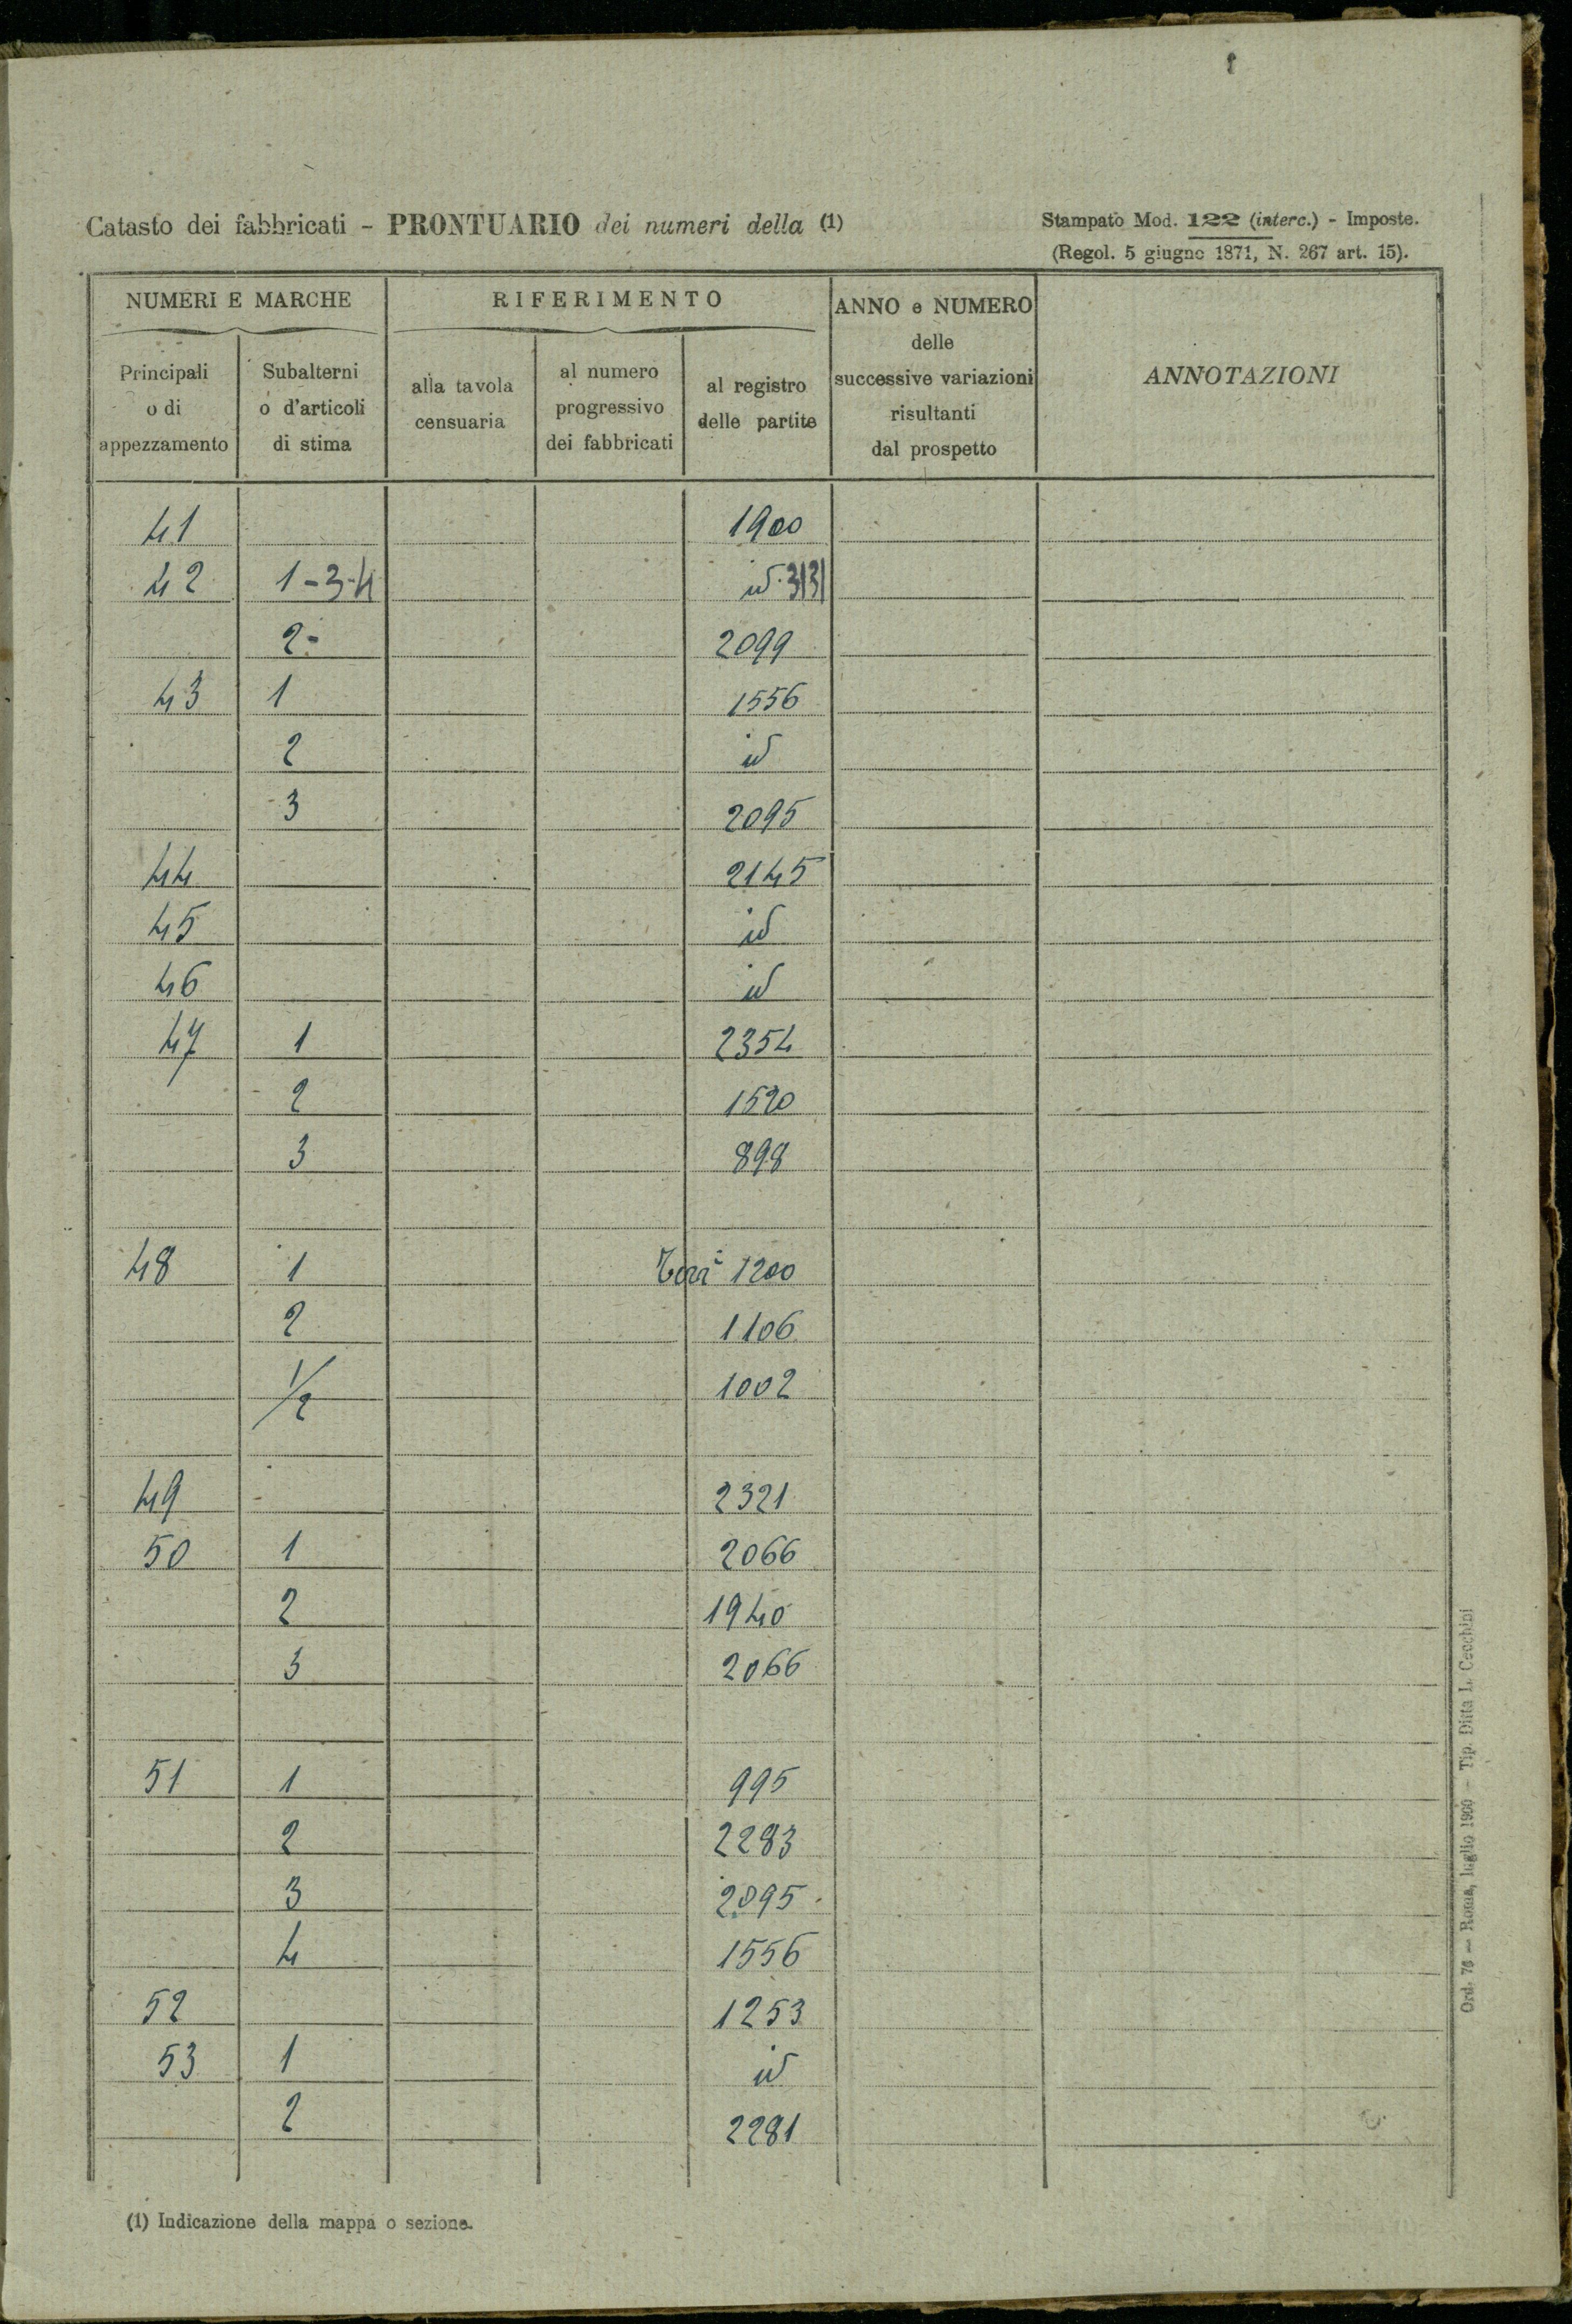 Catasto dei fabbricati - PRONTUARIO dei numeri della (1)
Stampato Mod. 122 (interc.) - Imposte.
(Regol. 5 giugno 1871, N. 267 art. 15).
NUMERI E MARCHE
RIFERIMENTO
ANNO e NUMERO
delle
successive variazioni
risultanti
dal prospetto
ANNOTAZIONI
Principali
o di
appezzamento
Subalterni
o d'articoli
di stima
alla tavola
censuaria
al numero
progressivo
dei fabbricati
al registro
delle partite
41 1900
42 1-3-4 id. 3131
2- 2099
43 1 1556
2 id
3 2095
44 2145
45 id
46 id
47 1 2354
2 1520
3 898
48 1 1200
2 1106
1/2 1002
49 2321
50 1 2066
2 1940
3 2066
51 1 995
2 2283
3 2095
4 1556
52 1253
53 1 id
2 2281
(1) Indicazione della mappa o sezione.
Ord. 76 — Roma, luglio 1900 — Tip. Ditta L. Cecchini